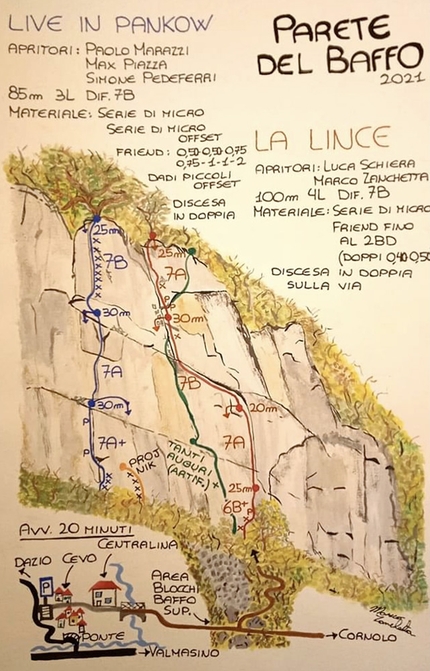 LIVE IN PANKOW
APRITORI: PAOLO MARAZZI
MAX PIAZZA
SIMONE PEDEFERRI
85m 3L DIF. 7B
MATERIALE: SERIE DI MICRO
SERIE DI MICRO
OFFSET
FRIEND: 0,50-0,50-0,75
0,75-1-1-2
DADI PICCOLI
OFFSET
DISCESA
IN DOPPIA
PARETE
DEL BAFFO
2021
LA LINCE
APRITORI: LUCA SCHIERA
MARCO ZANCHETTA
100m 4L DIF. 7B
MATERIALE: SERIE DI MICRO
FRIEND FINO
AL 2BD
(DOPPI 0,40 0,50
DISCESA IN DOPPIA
SULLA VIA
25m
7B
30m
7A
30m
P
7A+
P
PROJ
NIK
25m
7A
P P
30m
7B
20m
7A
TANTI
AUGURI
(ARTIF.)
25m
6B+
AVV. 20 MINUTI
CENTRALINA
DAZIO
CEVO
P
AREA
BLOCCHI
BAFFO
SUP.
PONTE
VALMASINO
CORNOLO